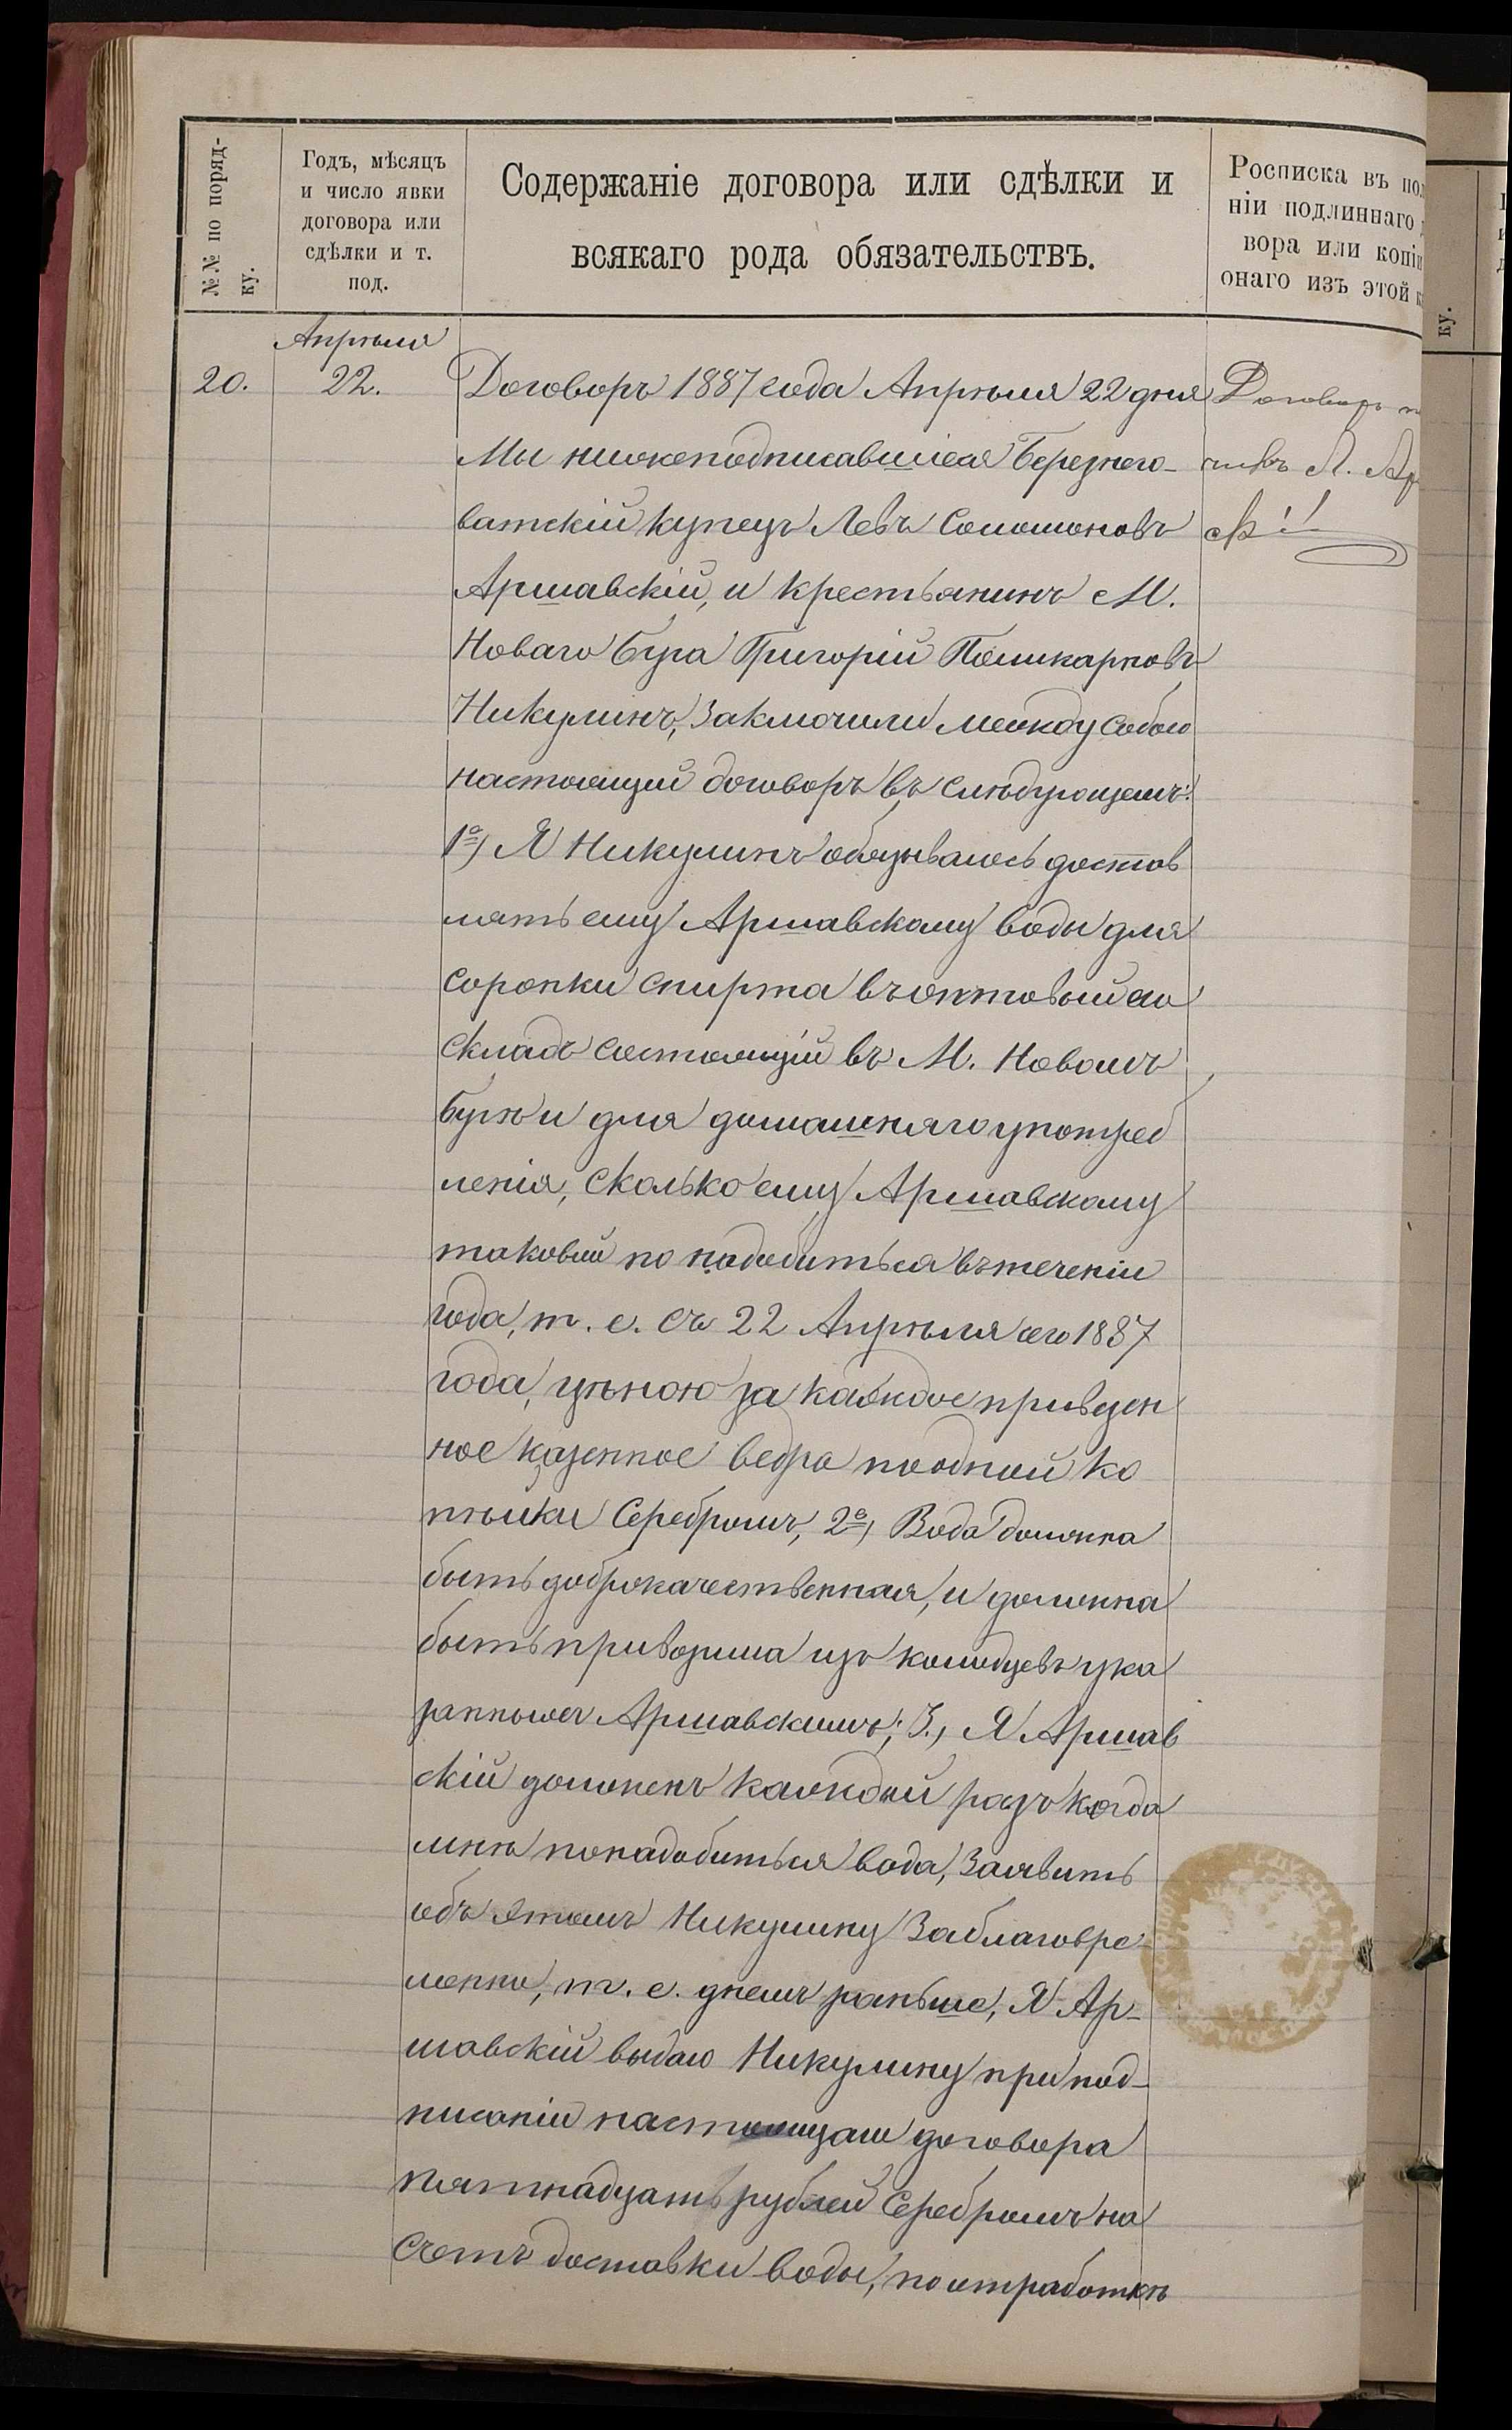 №№ по поряд-
ку.
Годъ, мѣсяцъ
и число явки
договора или
сдѣлки и т.
под.
Содержаніе договора или сдѣлки и
всякаго рода обязательствъ.
Росписка въ
ніи подлиннаго
вора или копіи
онаго изъ этой
ку.
Апрѣля
20.
22.
Договоръ 1887 года Апрѣля 22 дня
Мы нижеподписавшіеся Березнего-
ватскій купецъ Левъ Соломоновъ
Аршавскій, и крестьянинъ М.
Новаго Буга Григорій Поликарповъ
Никулинъ, заключили между собою
настоящій договоръ въ слѣдующемъ:
1е) Я Никулинъ обязываюсь достав
лять ему Аршавскому воды для
соропки спирта въ оптовый его
складъ состоящій въ М. Новомъ
Бугѣ и для домашняго употреб
ленія, сколько ему Аршавскому
таковой по надобиться въ теченіи
года, т. е. съ 22 Апрѣля сего 1887
года, цѣною за каждое привезен
ное казенное ведро по одной ко
пѣйки серебромъ, 2е) Вода должна
быть доброкачественная, и должна
быть привозима изъ колодцевъ ука
занныхъ Аршавскимъ; 3., Я Аршав
скій долженъ каждый разъ когда
мнѣ понадобиться вода, заявить
объ этомъ Никулину заблаговре-
менно, т. е. днемъ раньше, Я Ар-
шавскій выдаю Никулину при под-
писаніи настоящаго договора
пятнадцать рублей серебромъ на
счетъ доставки воды, по отработкѣ
Договоръ
чилъ Л. Ар